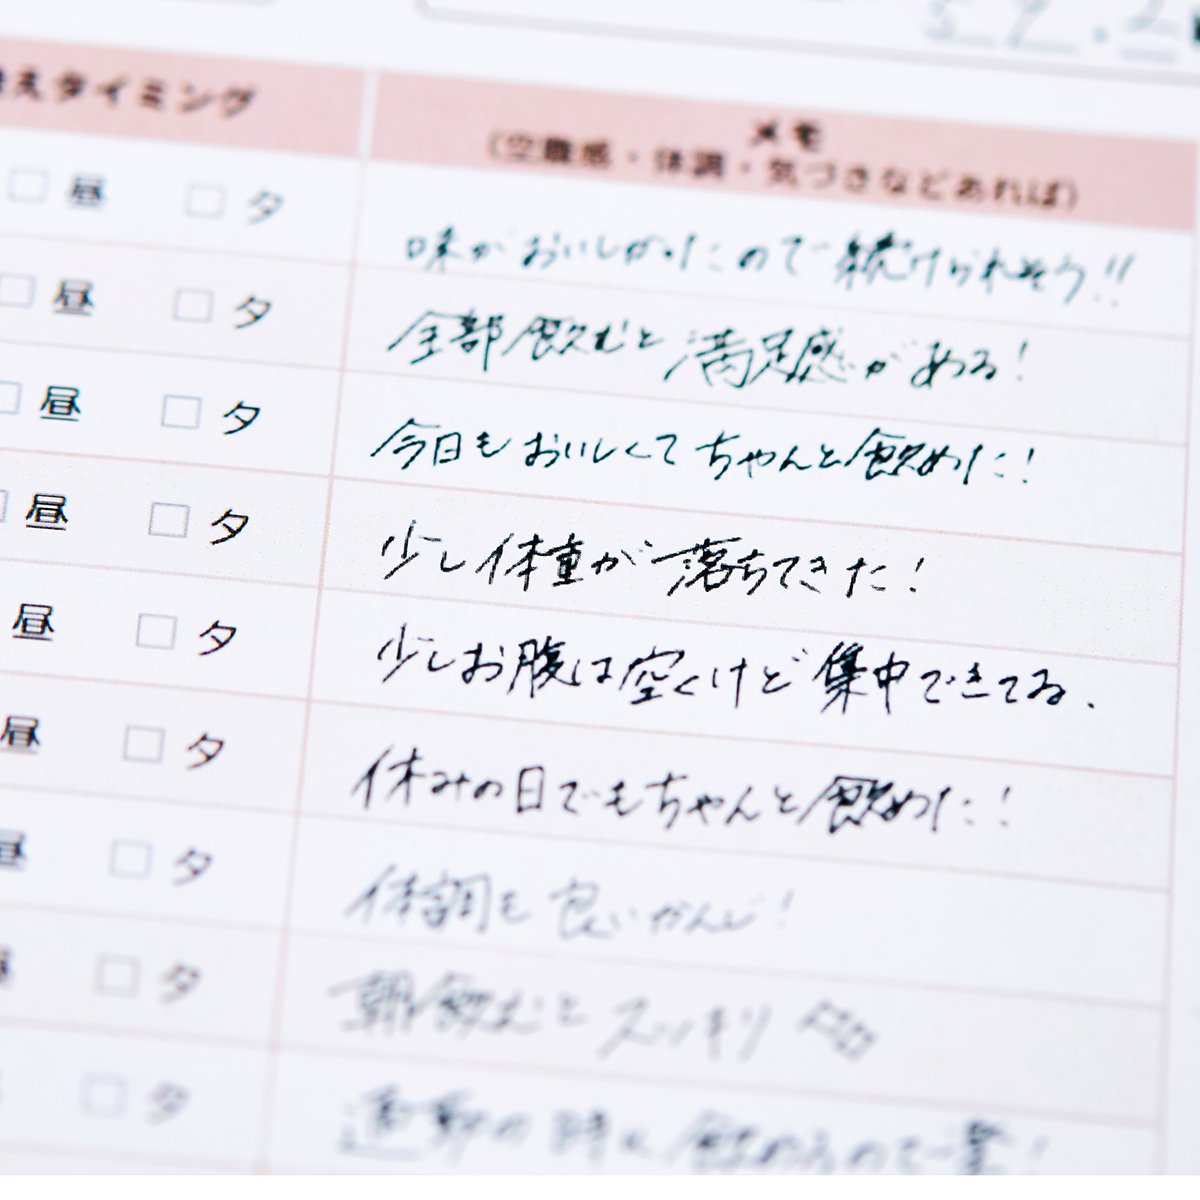 59.2
えタイミング
メモ
(空腹感・体調・気づきなどあれば)
□ 昼 □ 夕 味がおいしかったので続けられそう!!
□ 昼 □ 夕 全部飲むと満足感がある!
□ 昼 □ 夕 今日もおいしくてちゃんと飲めた!
□ 昼 □ 夕 少し体重が落ちてきた!
昼 □ 夕 少しお腹は空くけど集中できてる.
昼 □ 夕 休みの日でもちゃんと飲めた!
昼 □ 夕 体調も良いかんじ!
□ 夕 朝飲むとスッキリ
□ 夕 運動の時に飲めるので